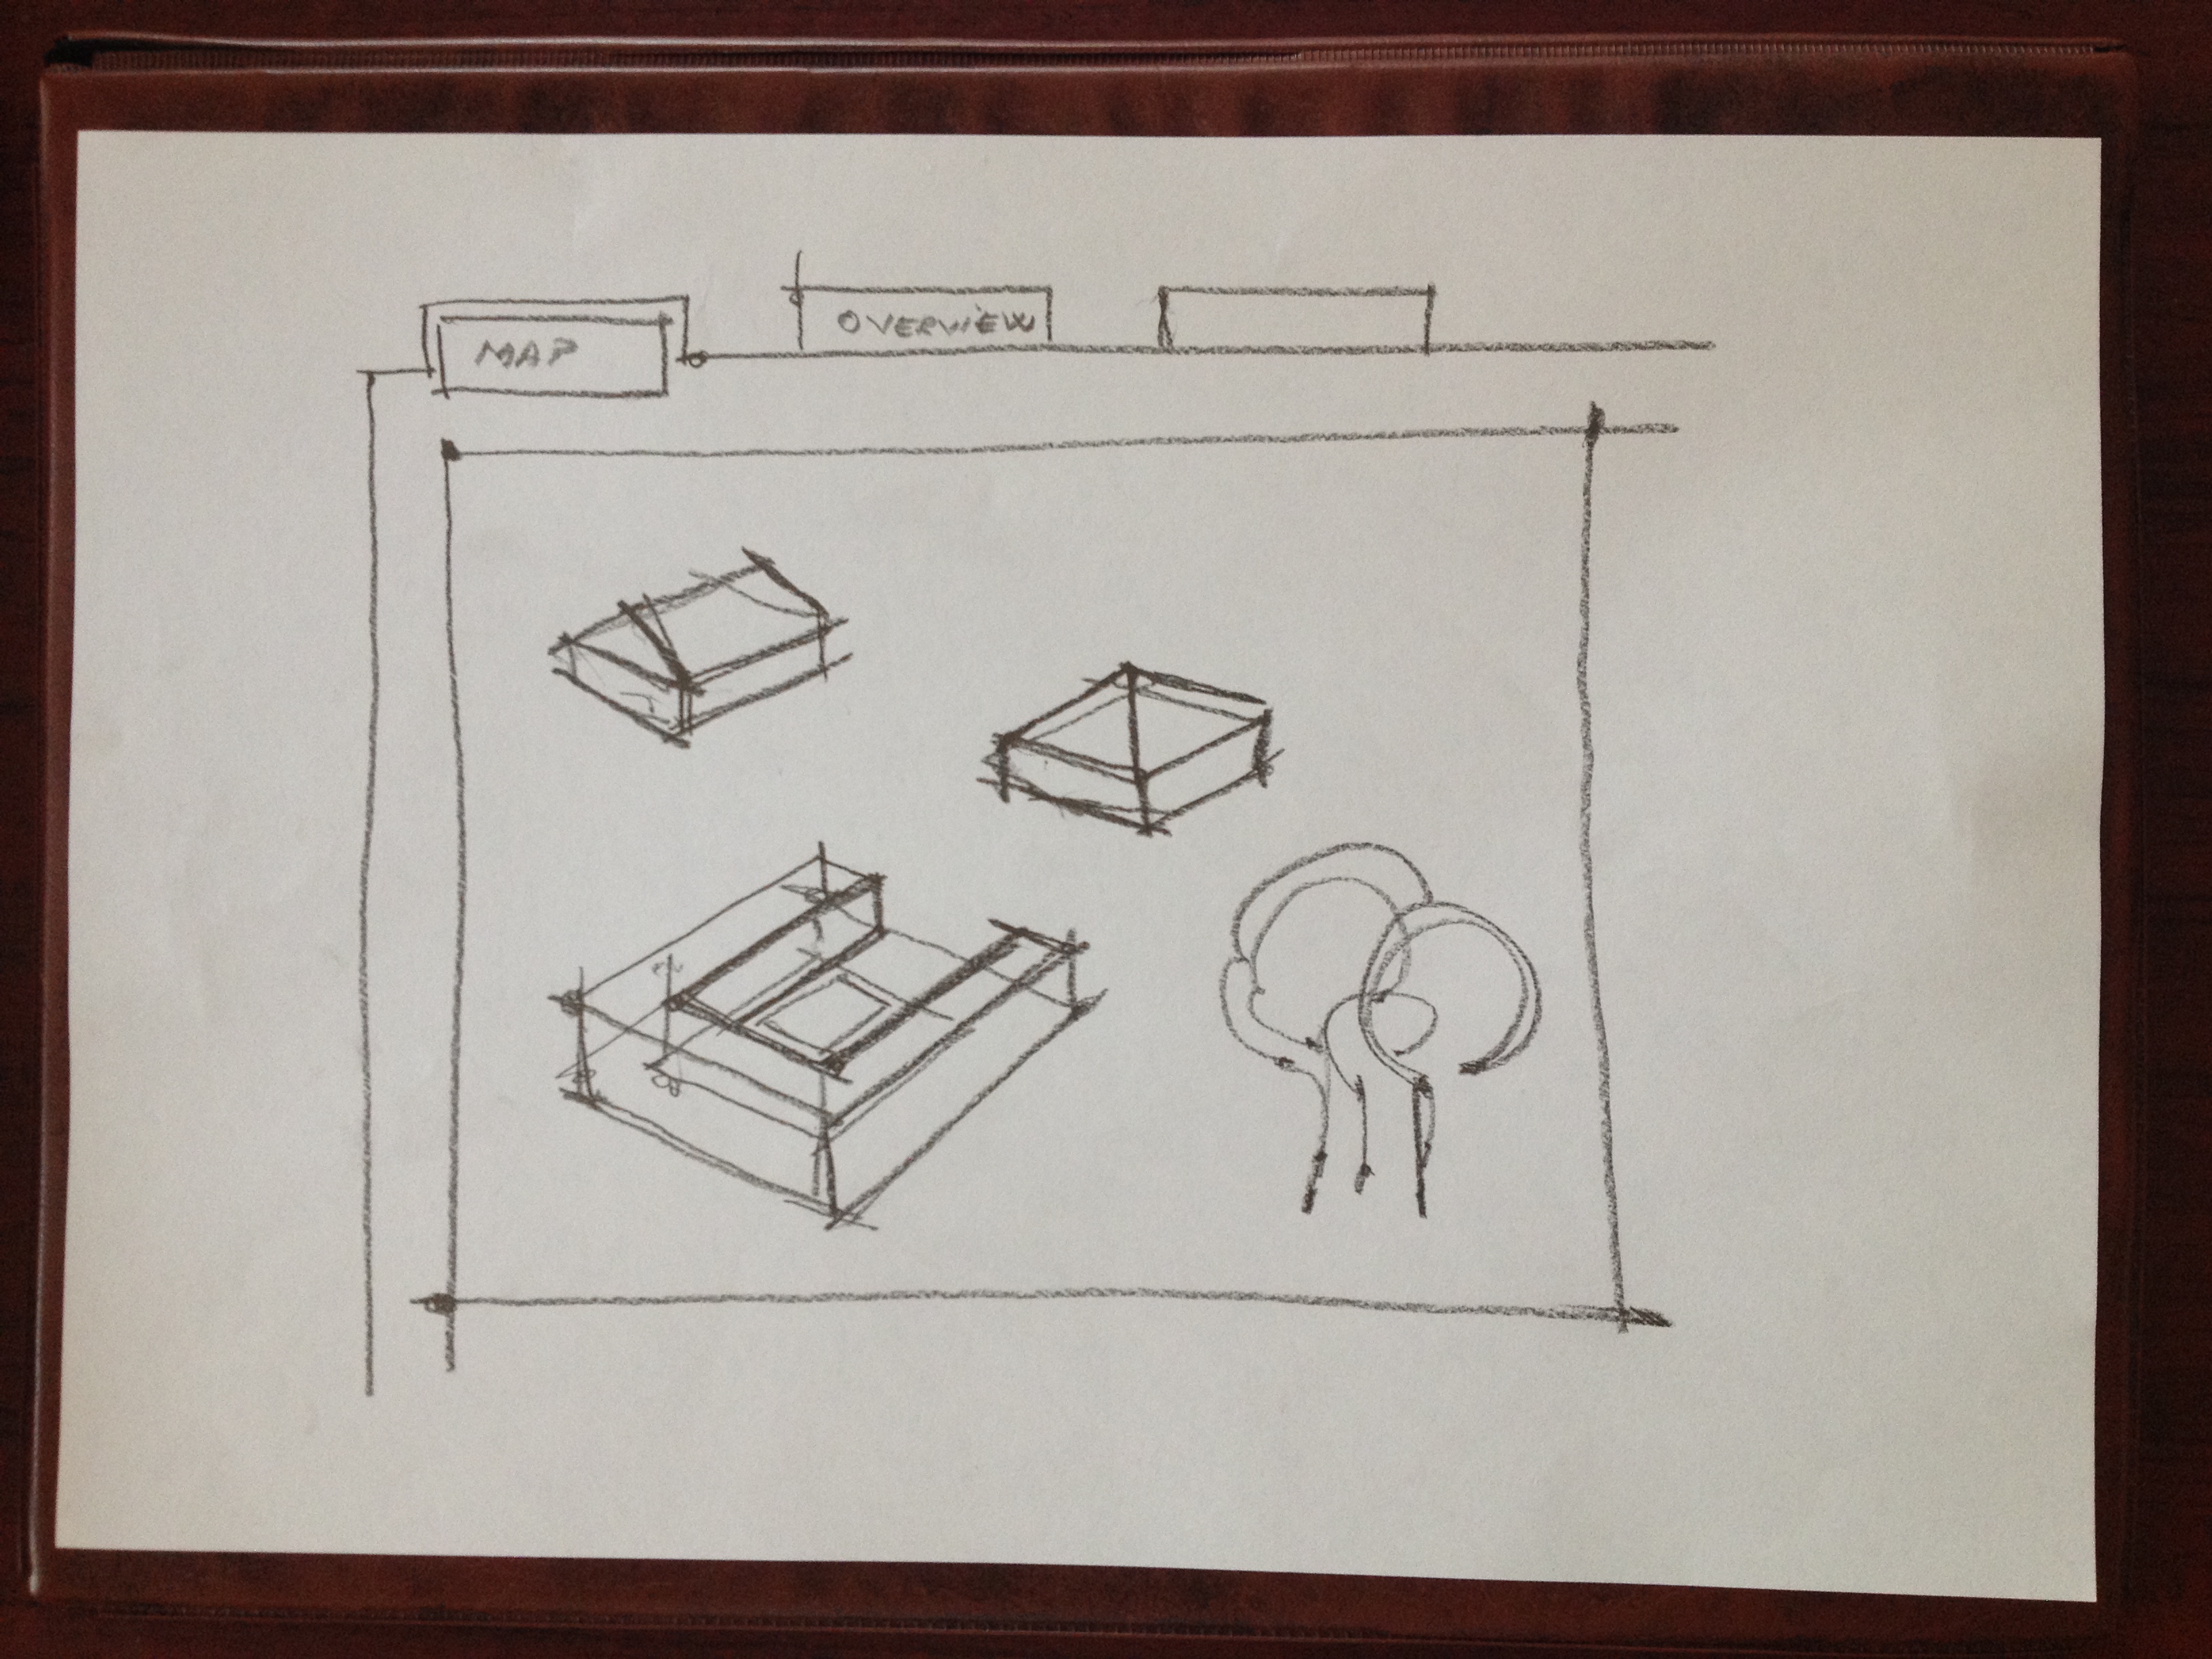 MAP
OVERVIEW